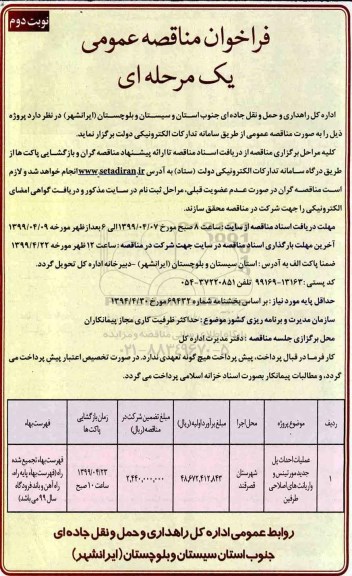 نوبت دوم
فراخوان مناقصه عمومی
یک مرحله ای
اداره کل راهداری و حمل و نقل جاده ای جنوب استان و سیستان و بلوچستان (ایرانشهر) در نظر دارد پروژه
ذیل را به صورت مناقصه عمومی از طریق سامانه تدارکات الکترونیکی دولت برگزار نماید.
کلیه مراحل برگزاری مناقصه از دریافت اسناد مناقصه تا ارائه پیشنهاد مناقصه گران و بازگشایی پاکت ها از
طریق درگاه سامانه تدارکات الکترونیکی دولت (ستاد) به آدرس www.setadiran.ir انجام خواهد شد و لازم
است مناقصه گران در صورت عدم عضویت قبلی، مراحل ثبت نام در سایت مذکور و دریافت گواهی امضای
الکترونیکی را جهت شرکت در مناقصه محقق سازند.
مهلت دریافت اسناد مناقصه از سایت : ساعت ۸ صبح مورخ ۱۳۹۹/۰۴/۰۷ الی ۶ بعدازظهر مورخه ۱۳۹۹/۰۴/۰۹
آخرین مهلت بارگذاری اسناد مناقصه در سایت جهت شرکت در مناقصه : ساعت ۱۲ ظهر مورخه ۱۳۹۹/۴/۲۲
ضمنا پاکت الف به آدرس : استان سیستان و بلوچستان (ایرانشهر) -دبیرخانه اداره کل تحویل گردد.
کد پستی : ۱۳۱۶۳-۹۹۱۶۹ تلفن ۳۷۲۲۰۸۵۱-۰۵۴
حداقل پایه مورد نیاز : بر اساس بخشنامه شماره ۶۹۴۳۲ مورخ ۱۳۹۴/۴/۲۰
سازمان مدیریت و برنامه ریزی کشور موضوع : حداکثر ظرفیت کاری مجاز پیمانکاران
محل برگزاری جلسه مناقصه : دفتر مدیریت اداره کل
کارفرما در قبال پرداخت، پیش پرداخت هیچ گونه تعهدی ندارد. در صورت تخصیص اعتبار پیش پرداخت می
گردد، و مطالبات پیمانکار بصورت اسناد خزانه اسلامی پرداخت می گردد.
ردیف موضوع پروژه محل اجرا مبلغ برآورد اولیه (ریال) مبلغ تضمین شرکت در مناقصه (ریال) زمان بازگشایی پاکت ها فهرست بهاء
۱ عملیات احداث پل جدید مورتینس و واریانت های اصلاحی طرفین شهرستان قصرقند ۴۸,۶۷۲,۴۱۲,۸۴۳ ۲,۴۴۰,۰۰۰,۰۰۰ ۱۳۹۹/۰۴/۲۳ ساعت ۱۰ صبح فهرست بهاء تجمیع شده راه (فهرست بهاء پایه راه، راه آهن و باند فرودگاه سال ۹۹ می باشد)
روابط عمومی اداره کل راهداری و حمل و نقل جاده ای
جنوب استان سیستان و بلوچستان (ایرانشهر)